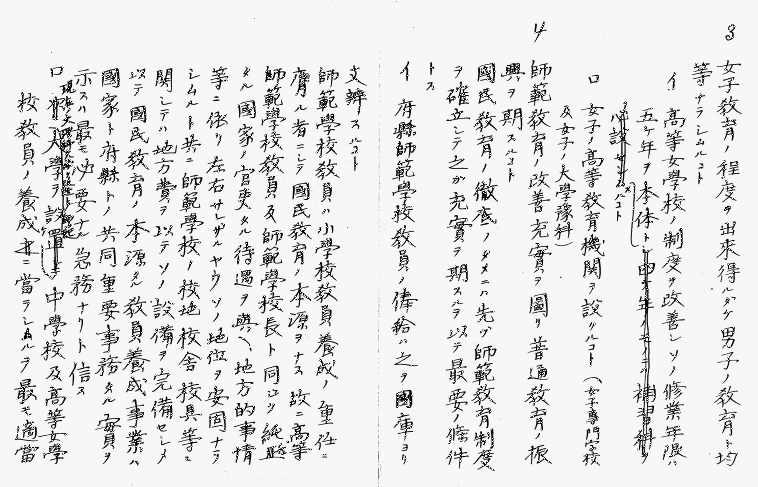 3
女子教育ノ程度ヲ出来得ルダケ男子ノ教育ト均
等ナラシムルコト
イ 高等女學校ノ制度ヲ改善シソノ修業年限ハ
五ケ年ヲ本体トシ四ケ年ノモノニ補習科ヲ
設クルコト
ロ 女子ノ高等教育機関ヲ設クルコト(女子專門学校
及女子ノ大學豫科)
4
師範教育ノ改善充實ヲ圖リ普通教育ノ振
興ヲ期スルコト
國民教育ノ徹底ノタメニハ先ヅ師範教育制度
ヲ確立シテ之カ充實ヲ期スルヲ以テ最要ノ條件
トス
イ 府縣師範學校教員ノ俸給ハ之ヲ國庫ヨリ
支辨スルコト
師範學校教員ハ小学校教員養成ノ重任ニ
膺ル者ニシテ國民教育ノ本源ヲナス故ニ高等
師範學校教員及師範學校長ト同ジク純然
タル國家ノ官吏タル待遇ヲ與ヘ地方的事情
等ニ依リ左右サレザルヤウソノ地位ヲ安固ナラ
シムルト共ニ師範學校ノ校地校舎校具等ニ
関シテハ地方費ヲ以テソノ設備ヲ完備セシメ
以テ國民教育ノ本源タル教員養成事業ハ
國家ト府縣トノ共同重要事務タル實ヲ
示スハ最モ必要ナル急務ナリト信ス
ロ 大學ヲ設置シ中學校及高等女學
校教員ノ養成ニ當ラシムルヲ最モ適當